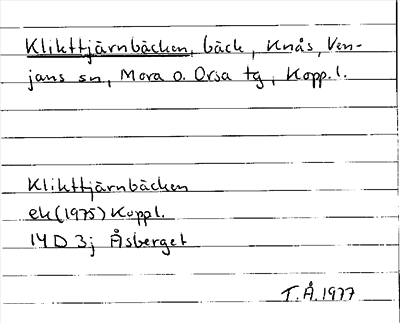 Klikttjärnbäcken, bäck, Knås, Ven-
jans sn, Mora o. Orsa tg, Kopp. l.
Klikttjärnbäcken
ek (1975) Koppl.
14D 3j Åsberget
T.Å. 1977